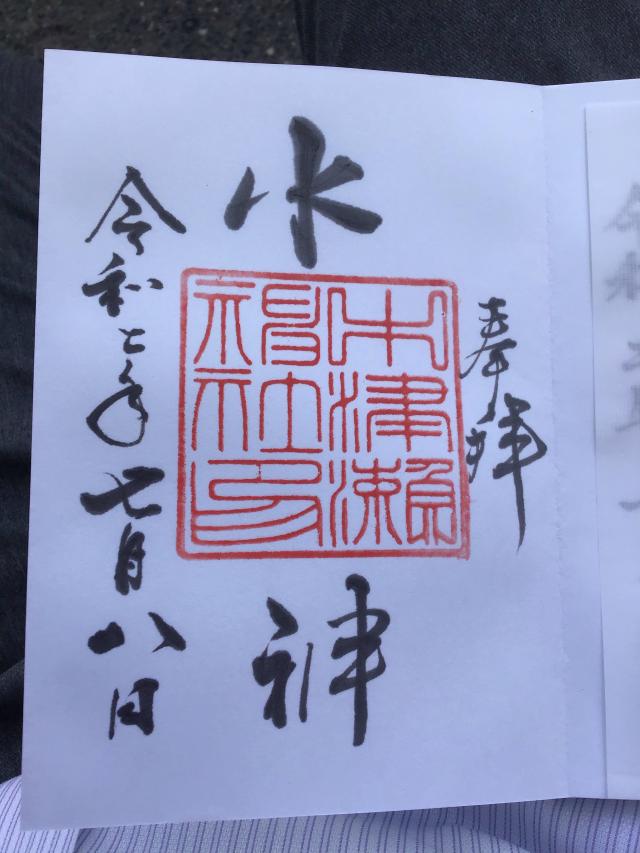 奉拝
水神
津瀬
神社印
令和七年七月八日